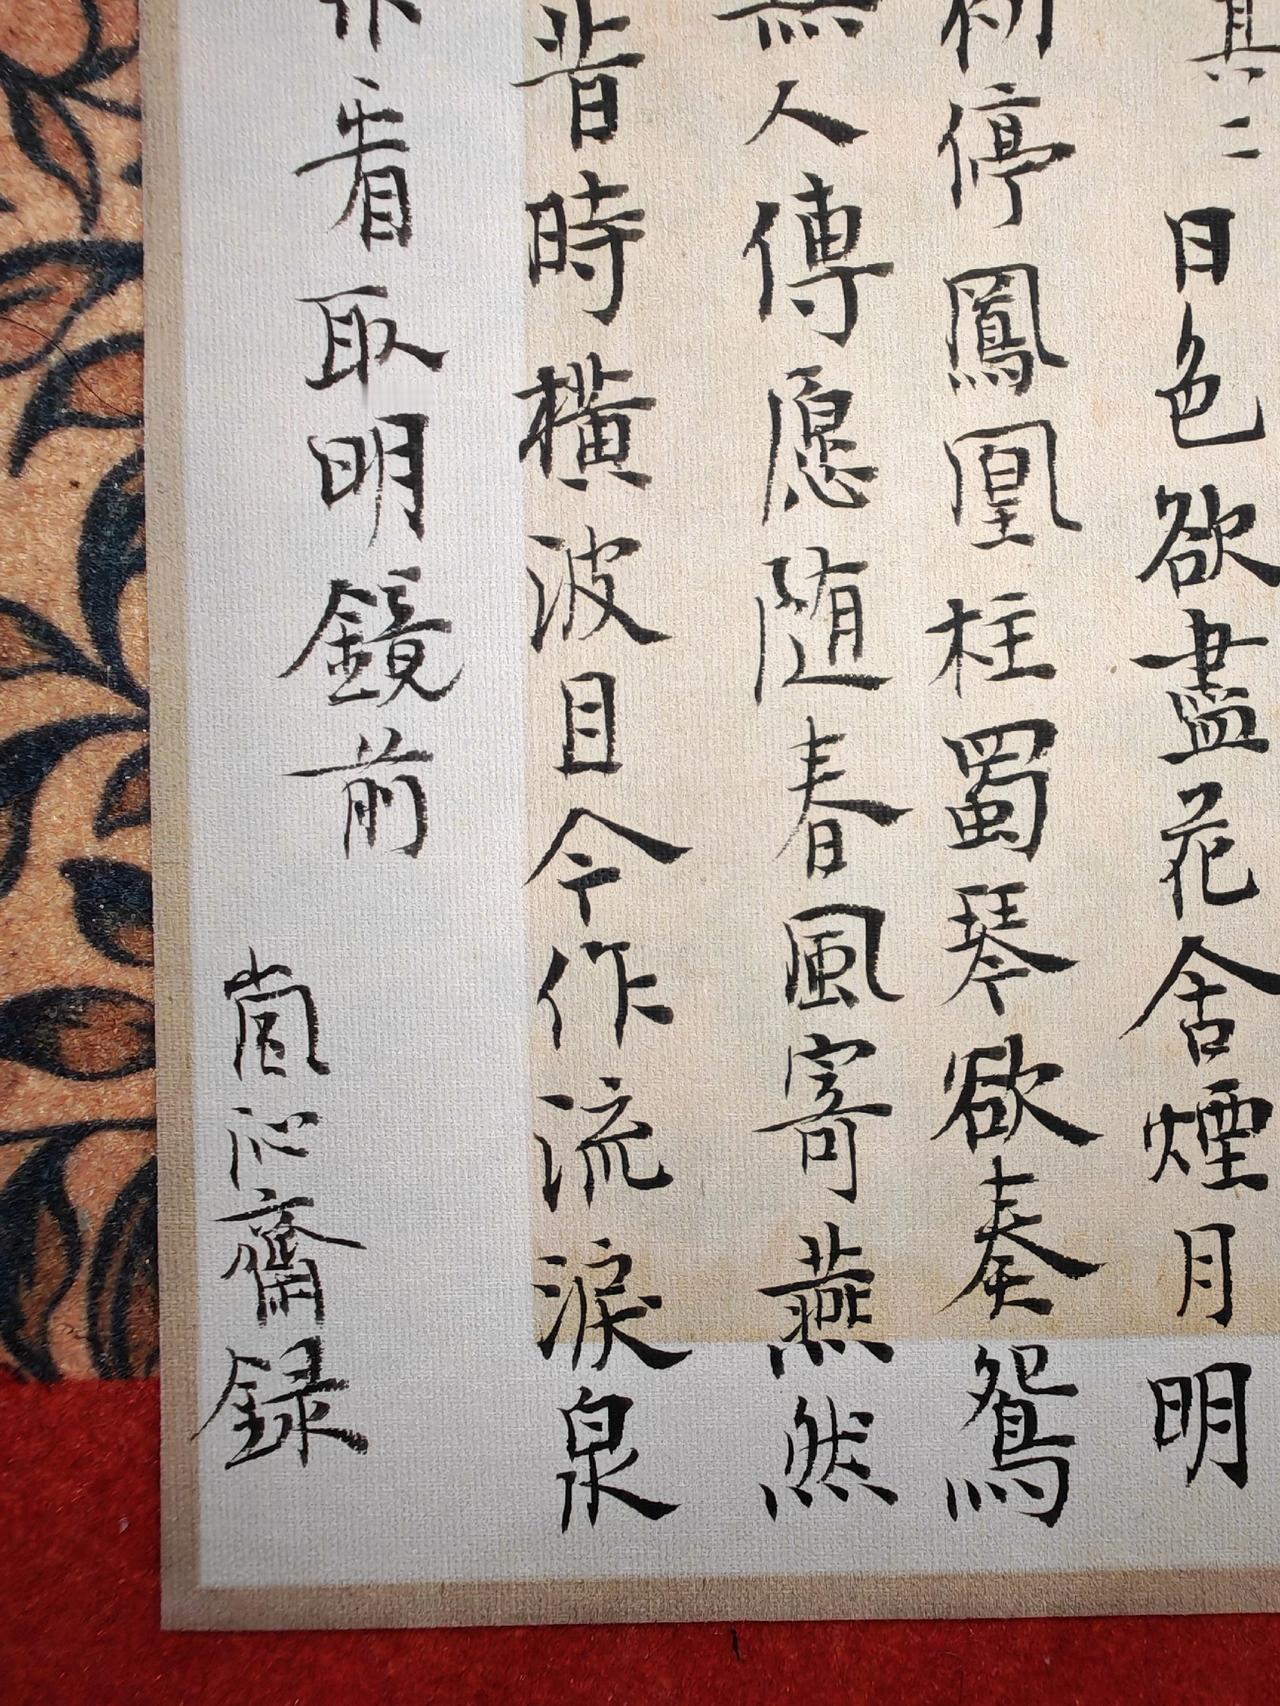 其二 日色欲盡花含煙月明
初停鳳凰柱蜀琴欲奏鴛
無人傳愿随春風寄燕然
昔時橫波目今作流淚泉
看取明鏡前
沁齋録